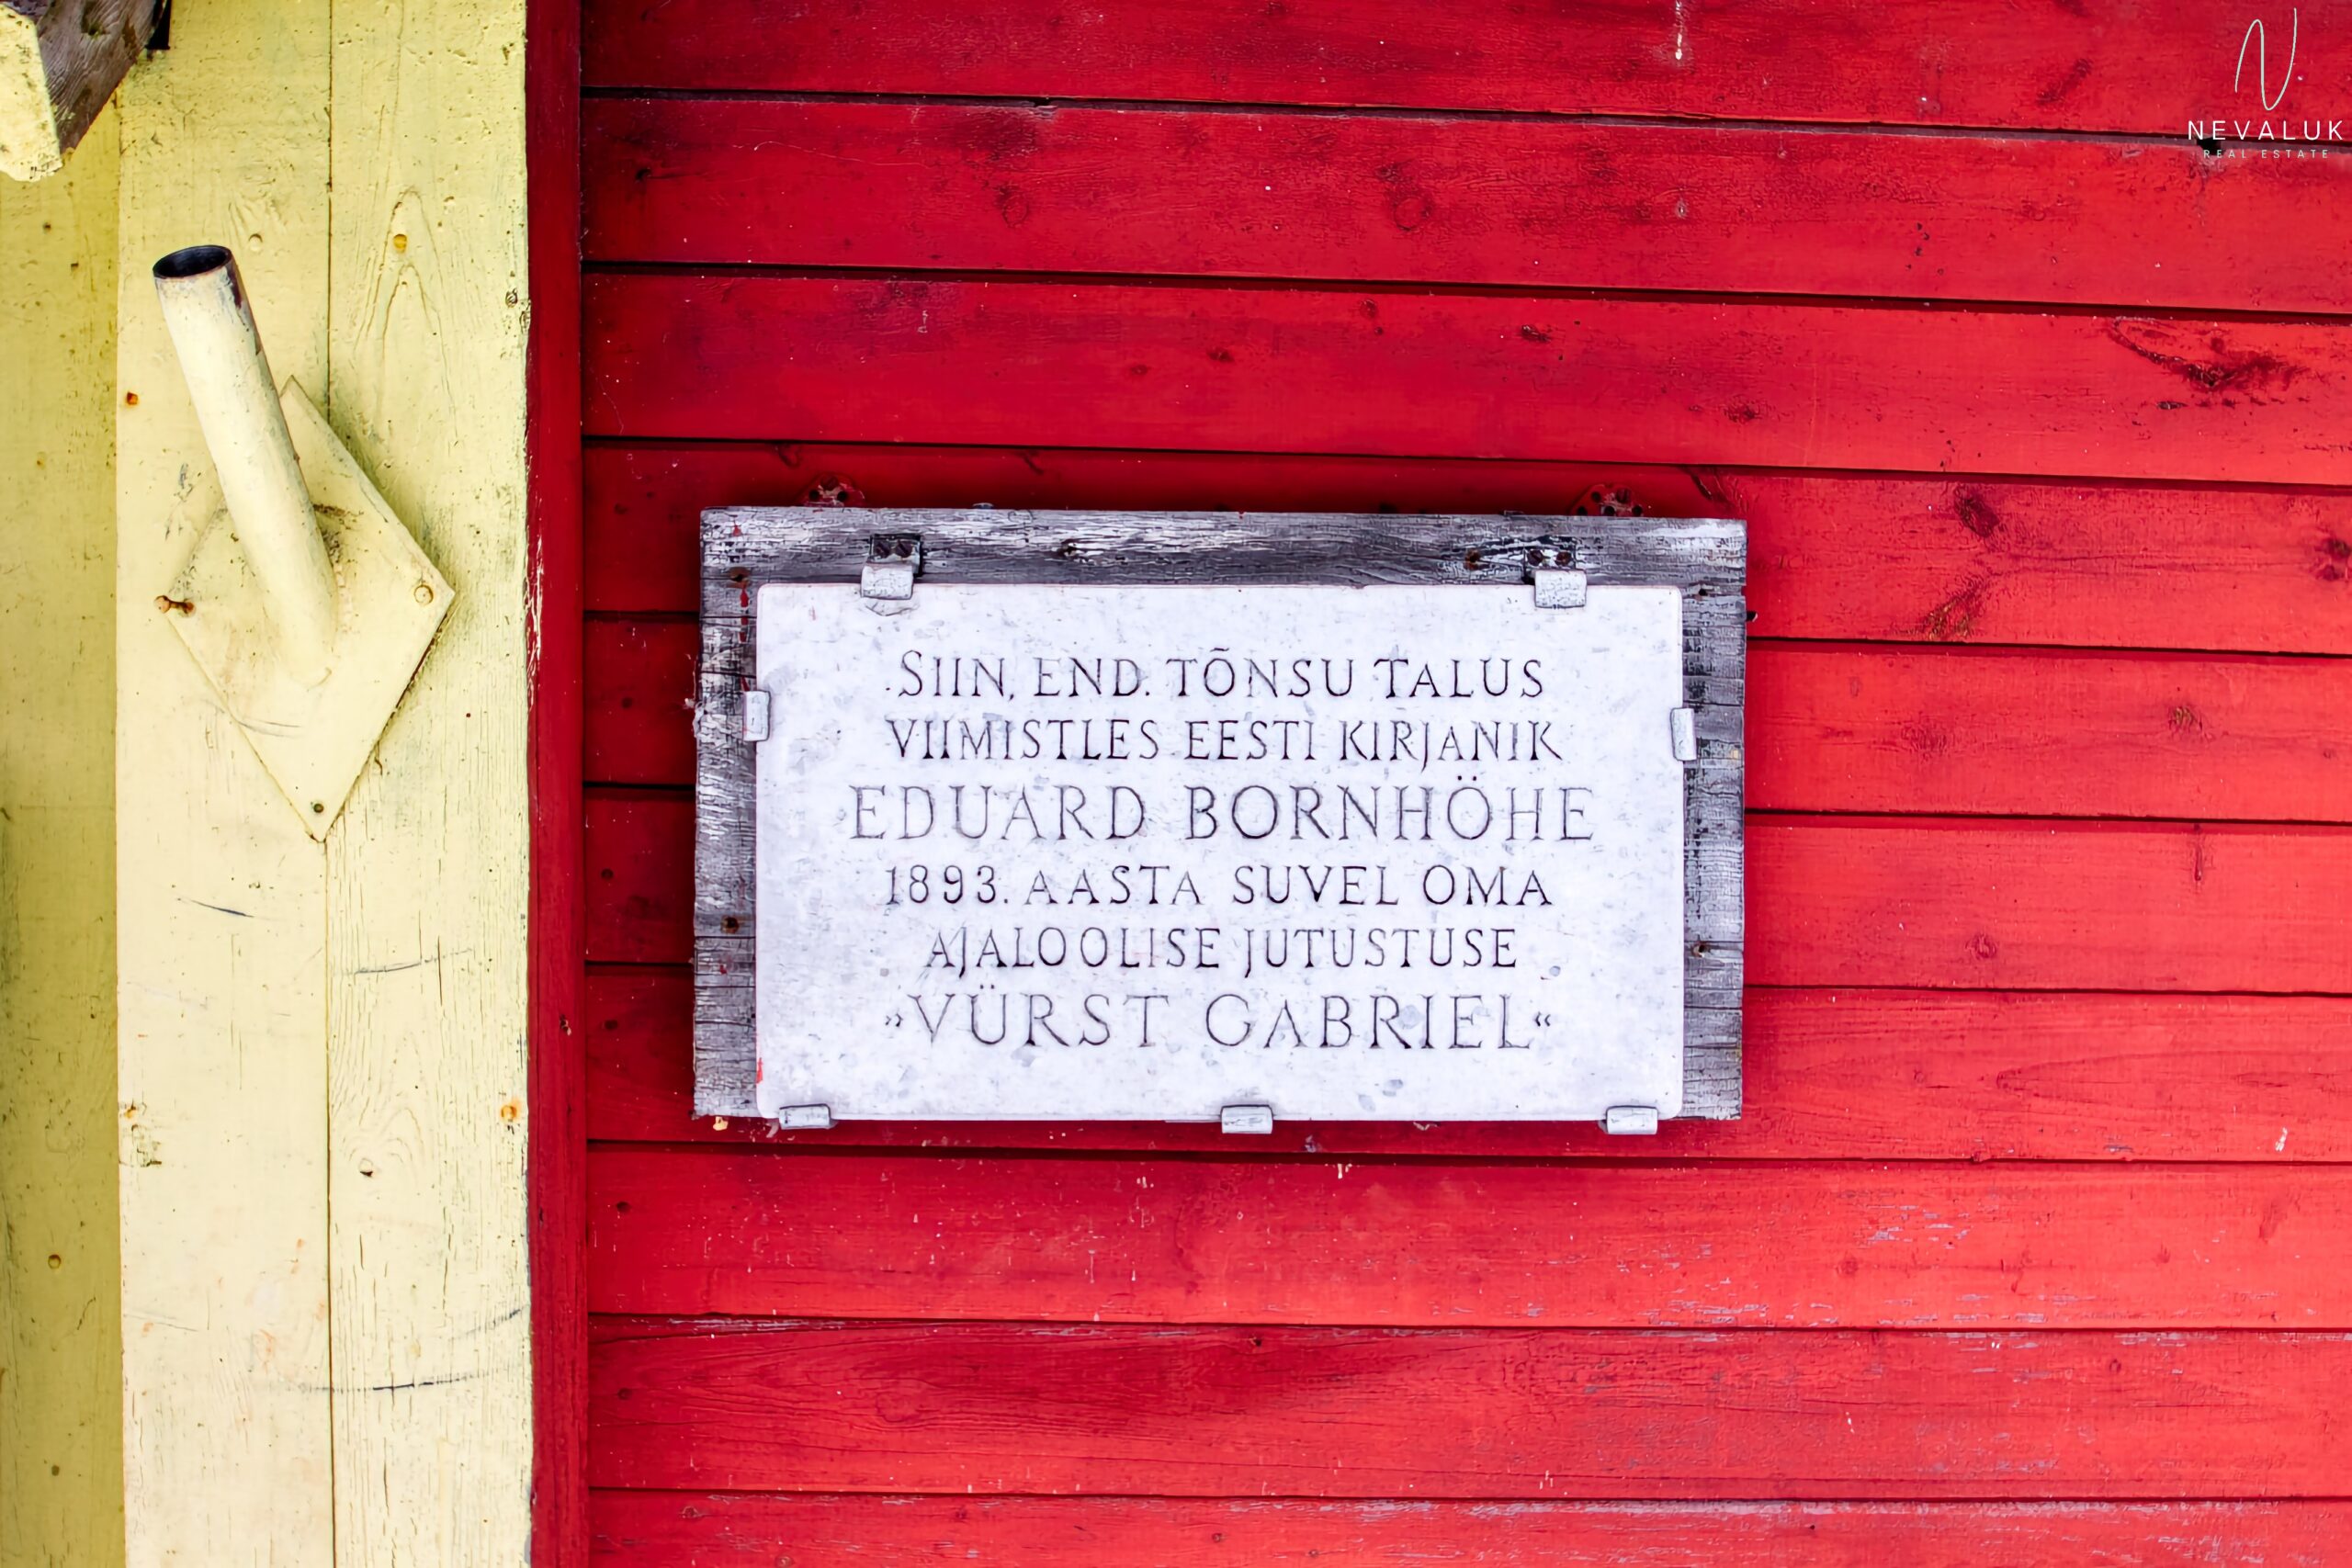 N.
NEVALUK
REAL ESTATE
SIIN, END. TÕNSU TALUS
VIIMISTLES EESTI KIRJANIK
EDUARD BORNHÖHE
1893. AASTA SUVEL OMA
AJALOOLISE JUTUSTUSE
»VÜRST GABRIEL«